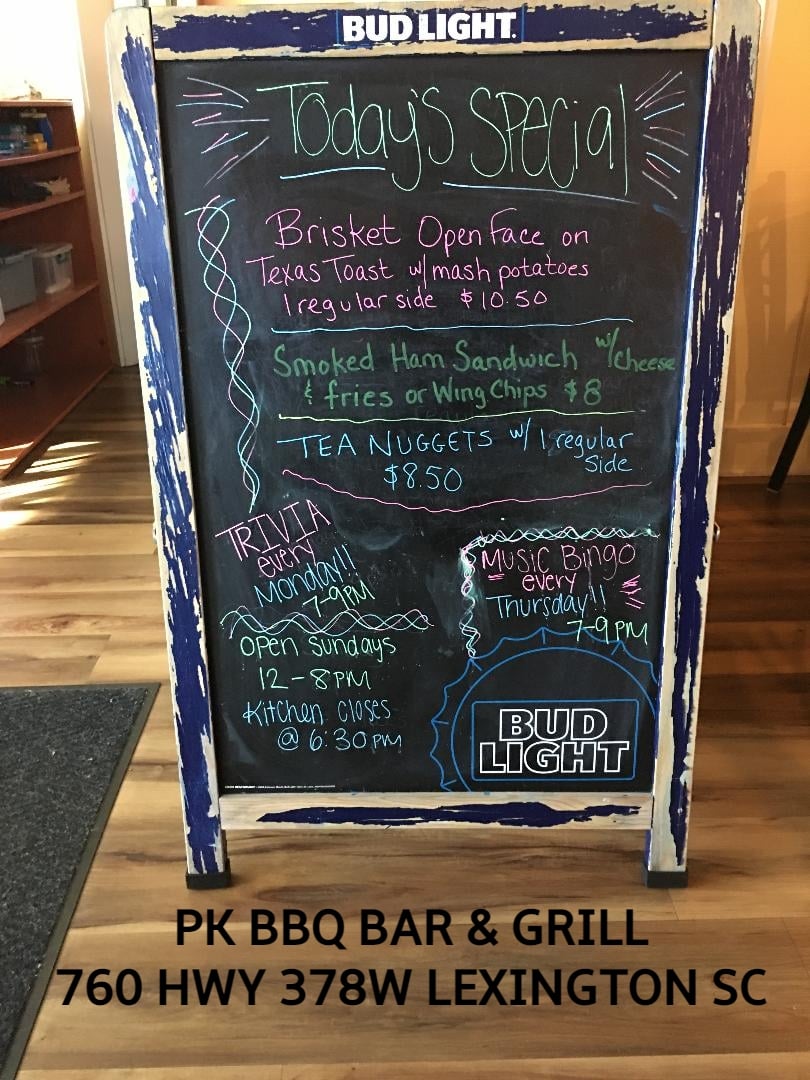 BUD LIGHT.
Today's Special
Brisket Open Face on
Texas Toast w/ mash potatoes
1 regular side $10.50
Smoked Ham Sandwich w/ cheese
& fries or Wing Chips $8
TEA NUGGETS w/ 1 regular
Side
$8.50
TRIVIA
every
Monday!!
7-9PM
Music Bingo
every
Thursday!!
7-9PM
Open Sundays
12-8PM
Kitchen closes
@ 6:30PM
BUD
LIGHT
PK BBQ BAR & GRILL
760 HWY 378W LEXINGTON SC